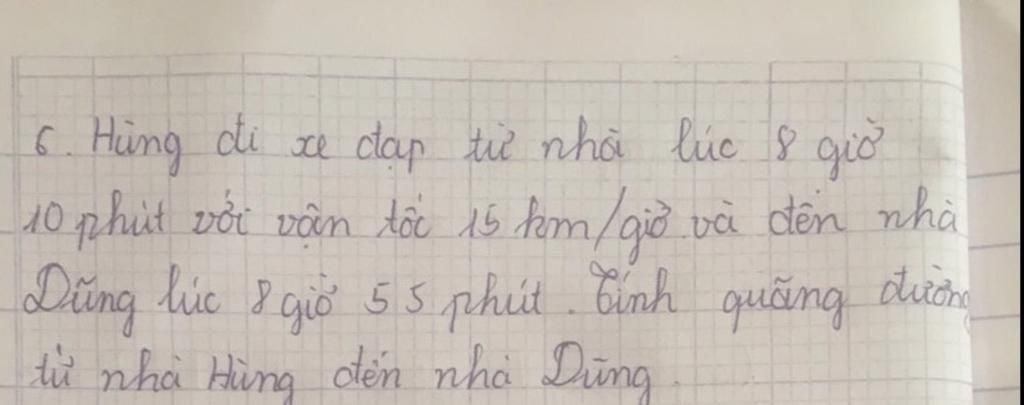 6. Hùng đi xe đạp từ nhà lúc 8 giờ
10 phút với vận tốc 15 km/giờ và đến nhà
Dũng lúc 8 giờ 55 phút. Tính quãng đường
từ nhà Hùng đến nhà Dũng.